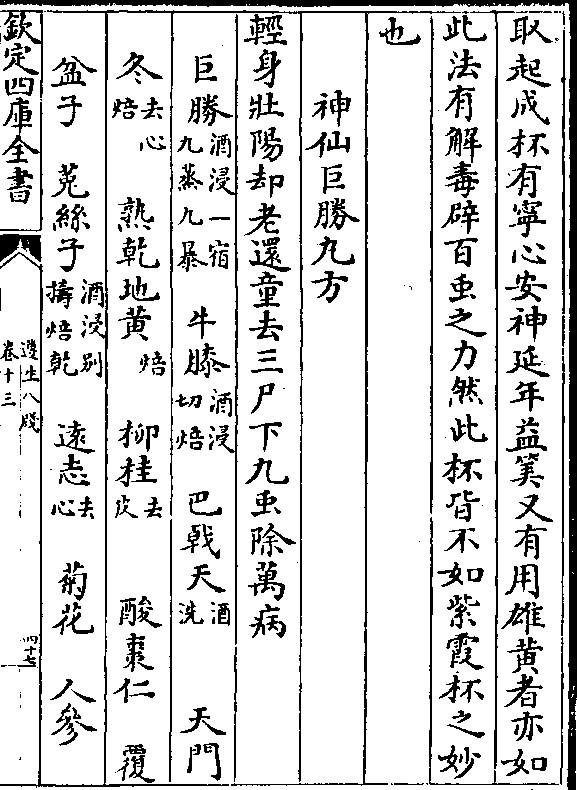 取起成杯有寧心安神延年益筭又有用雄黄者亦如
此法有解毒辟百虫之力然此杯皆不如紫霞杯之妙
也
神仙巨勝九方
輕身壯陽却老還童去三尸下九虫除萬病
巨勝酒浸一宿九蒸九暴 牛膝酒浸切焙 巴戟天酒洗 天門
冬去心焙 熟乾地黄焙 柳桂去皮 酸棗仁 覆
盆子 菟絲子酒浸别擣焙乾 遠志去心 菊花 人參
欽定四庫全書
遵生八牋
卷十三
四十七